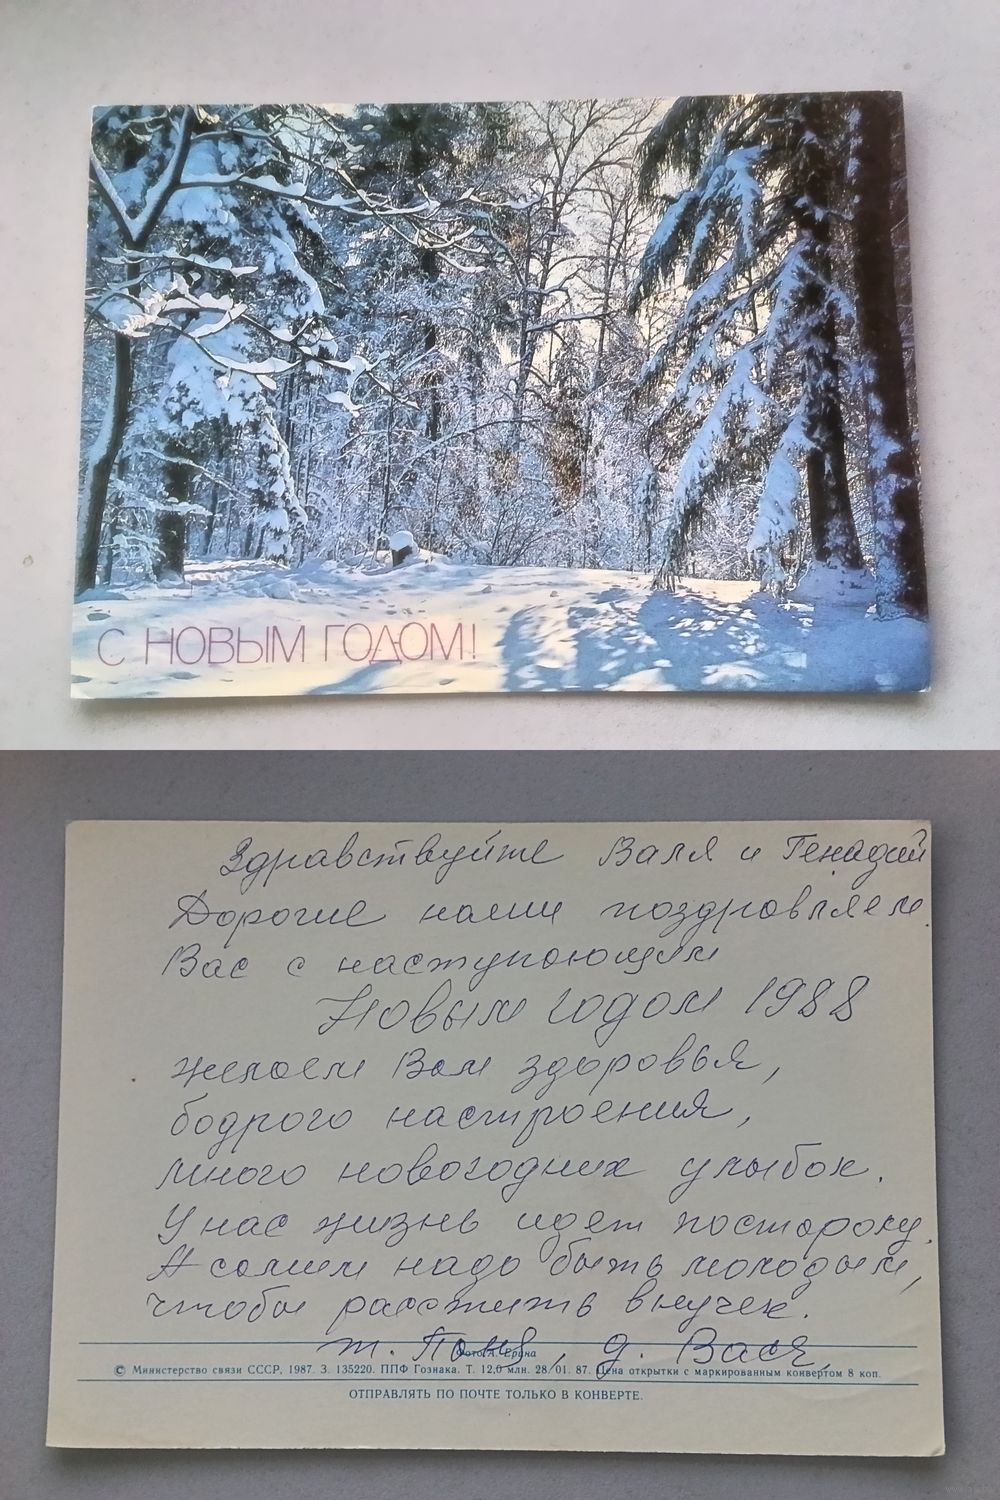 С НОВЫМ ГОДОМ!
Здравствуйте Валя и Генадий
Дорогие наши поздравляем
Вас с наступающим
Новым годом 1988
желаем Вам здоровья,
бодрого настроения,
много новогодних улыбок.
У нас жизнь идет постороку.
А самим надо быть молодым,
чтобы расстить внучек.
т. Поня, д. Вася.
Фото А. Ерина
© Министерство связи СССР, 1987. З. 135220. ППФ Гознака. Т. 12,0 млн. 28/01. 87. Цена открытки с маркированным конвертом 8 коп.
ОТПРАВЛЯТЬ ПО ПОЧТЕ ТОЛЬКО В КОНВЕРТЕ.